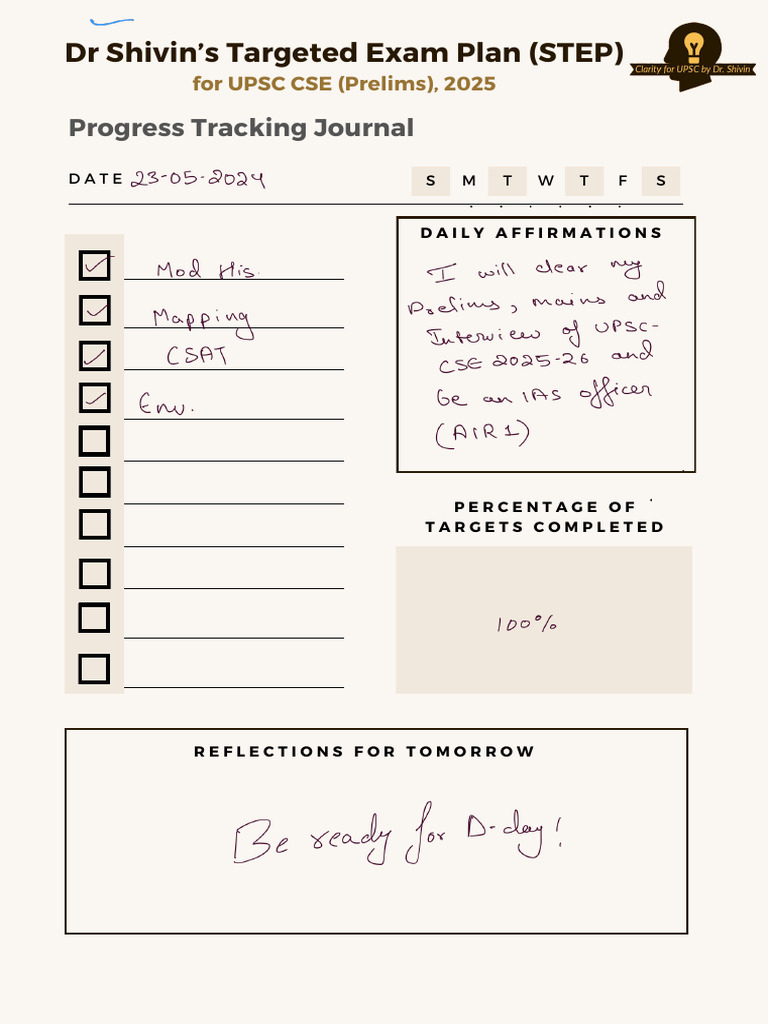 Dr Shivin's Targeted Exam Plan (STEP)
for UPSC CSE (Prelims), 2025
Clarity for UPSC by Dr. Shivin
Progress Tracking Journal
DATE 23-05-2024
S M T W T F S
Mod His.
Mapping
CSAT
Env.
DAILY AFFIRMATIONS
I will clear my
Prelims, mains and
Interview of UPSC-
CSE 2025-26 and
be an IAS officer
(AIR 1)
PERCENTAGE OF
TARGETS COMPLETED
100%
REFLECTIONS FOR TOMORROW
Be ready for D-day!